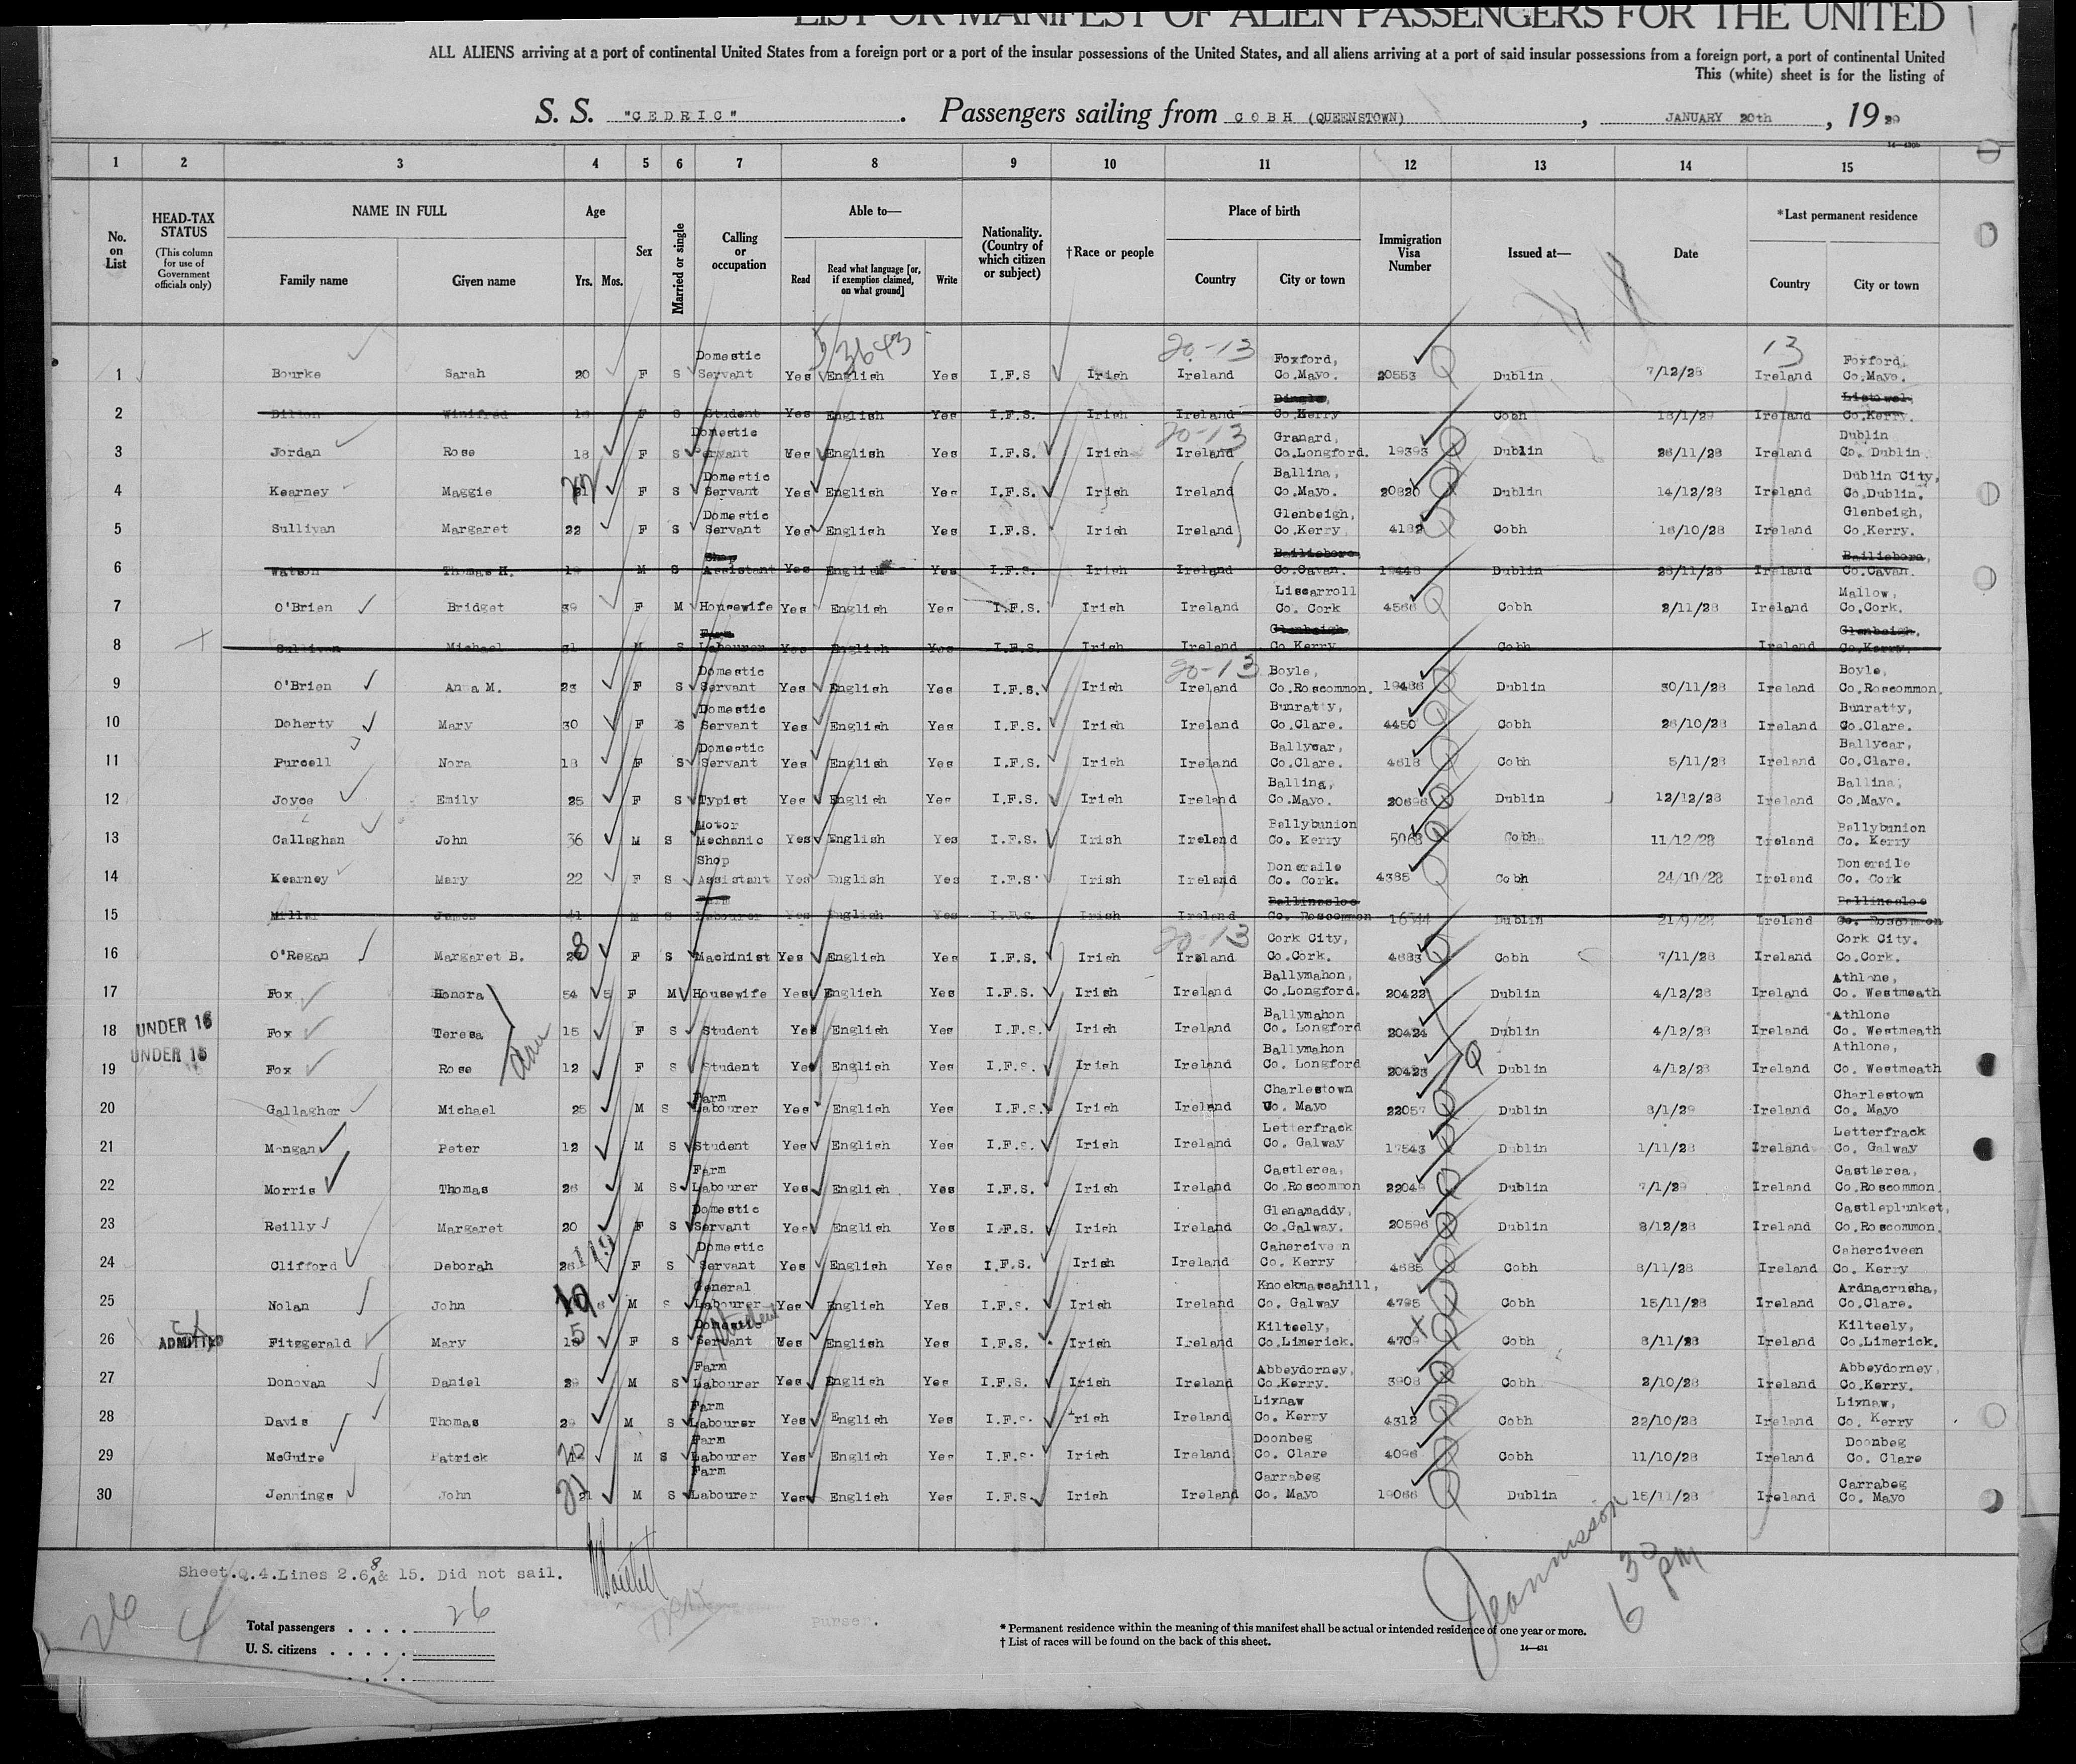 LIST OR MANIFEST OF ALIEN PASSENGERS FOR THE UNITED
ALL ALIENS arriving at a port of continental United States from a foreign port or a port of the insular possessions of the United States, and all aliens arriving at a port of said insular possessions from a foreign port, a port of continental United
This (white) sheet is for the listing of
S. S. "CEDRIC" . Passengers sailing from COBH (QUEENSTOWN) , JANUARY 20th , 19 29
14—430b
1 2 3 4 5 6 7 8 9 10 11 12 13 14 15
No. on List
HEAD-TAX STATUS (This column for use of Government officials only)
NAME IN FULL Family name Given name
Age Yrs. Mos.
Sex
Married or single
Calling or occupation
Able to— Read Read what language [or, if exemption claimed, on what ground] Write
Nationality. (Country of which citizen or subject)
†Race or people
Place of birth Country City or town
Immigration Visa Number
Issued at—
Date
*Last permanent residence Country City or town
53643 20-13 13
1 Bourke Sarah 20 F S Domestic Servant Yes English Yes I.F.S Irish Ireland Foxford, Co.Mayo. 20553 Q Dublin 7/12/28 Ireland Foxford, Co.Mayo.
2 Dillon Winifred F S Student Yes English Yes I.F.S. Irish Ireland Dingle, Co.Kerry Cobh 18/1/29 Ireland Listowel, Co.Kerry.
20-13
3 Jordan Rose 18 F S Domestic Servant Yes English Yes I.F.S. Irish Ireland Granard, Co.Longford. 19393 Q Dublin 26/11/28 Ireland Dublin Co. Dublin.
4 Kearney Maggie 22 F S Domestic Servant Yes English Yes I.F.S. Irish Ireland Ballina, Co.Mayo. 20820 Q Dublin 14/12/28 Ireland Dublin City, Co.Dublin.
5 Sullivan Margaret 22 F S Domestic Servant Yes English Yes I.F.S. Irish Ireland Glenbeigh, Co.Kerry 4182 Q Cobh 16/10/28 Ireland Glenbeigh, Co.Kerry.
6 Watson Thomas H. M S Shop Assistant Yes English Yes I.F.S. Irish Ireland Bailieboro, Co.Cavan. 19448 Dublin 28/11/28 Ireland Bailieboro, Co.Cavan.
7 O'Brien Bridget 39 F M Housewife Yes English Yes I.F.S. Irish Ireland Liscarroll Co. Cork 4566 Q Cobh 2/11/28 Ireland Mallow, Co.Cork.
8 Sullivan Michael 31 M S Farm Labourer Yes English Yes I.F.S. Irish Ireland Glenbeigh, Co Kerry Cobh Ireland Glenbeigh, Co.Kerry.
20-13
9 O'Brien Anna M. 23 F S Domestic Servant Yes English Yes I.F.S. Irish Ireland Boyle, Co.Roscommon. 19486 Q Dublin 30/11/28 Ireland Boyle, Co.Roscommon.
10 Doherty Mary 30 F S Domestic Servant Yes English Yes I.F.S. Irish Ireland Bunratty, Co.Clare. 4450 Q Cobh 26/10/28 Ireland Bunratty, Co.Clare.
11 Purcell Nora 18 F S Domestic Servant Yes English Yes I.F.S. Irish Ireland Ballycar, Co.Clare. 4618 Q Cobh 5/11/28 Ireland Ballycar, Co.Clare.
12 Joyce Emily 25 F S Typist Yes English Yes I.F.S. Irish Ireland Ballina, Co.Mayo. 20696 Q Dublin 12/12/28 Ireland Ballina, Co.Mayo.
13 Callaghan John 36 M S Motor Mechanic Yes English Yes I.F.S. Irish Ireland Ballybunion Co. Kerry 5068 Q Cobh 11/12/28 Ireland Ballybunion Co. Kerry
14 Kearney Mary 22 F S Shop Assistant Yes English Yes I.F.S. Irish Ireland Doneraile Co. Cork. 4385 Q Cobh 24/10/28 Ireland Doneraile Co. Cork
15 Miller James 41 M S Farm Labourer Yes English Yes I.F.S. Irish Ireland Ballinasloe Co. Roscommon 16544 Dublin 21/9/28 Ireland Ballinasloe Co. Roscommon
20-13
16 O'Regan Margaret B. 28 F S Machinist Yes English Yes I.F.S. Irish Ireland Cork City, Co.Cork. 4683 Q Cobh 7/11/28 Ireland Cork City. Co.Cork.
17 Fox Honora 54 5 F M Housewife Yes English Yes I.F.S. Irish Ireland Ballymahon, Co.Longford. 20422 Dublin 4/12/28 Ireland Athlone, Co. Westmeath
18 UNDER 16 Fox Teresa 15 F S Student Yes English Yes I.F.S. Irish Ireland Ballymahon Co. Longford 20424 Dublin 4/12/28 Ireland Athlone Co. Westmeath
19 UNDER 16 Fox Rose 12 F S Student Yes English Yes I.F.S. Irish Ireland Ballymahon Co. Longford 20423 Q Dublin 4/12/28 Ireland Athlone, Co. Westmeath
20 Gallagher Michael 25 M S Farm Labourer Yes English Yes I.F.S. Irish Ireland Charlestown Co. Mayo 22057 Q Dublin 8/1/29 Ireland Charlestown Co. Mayo
21 Mongan Peter 12 M S Student Yes English Yes I.F.S. Irish Ireland Letterfrack Co. Galway 17543 Q Dublin 1/11/28 Ireland Letterfrack Co. Galway
22 Morris Thomas 26 M S Farm Labourer Yes English Yes I.F.S. Irish Ireland Castlerea, Co.Roscommon 22049 Q Dublin 7/1/29 Ireland Castlerea, Co.Roscommon.
23 Reilly Margaret 20 F S Domestic Servant Yes English Yes I.F.S. Irish Ireland Glenamaddy, Co.Galway. 20596 Q Dublin 8/12/28 Ireland Castleplunket, Co.Roscommon.
24 Clifford Deborah 26 F S Domestic Servant Yes English Yes I.F.S. Irish Ireland Caherciveen Co. Kerry 4685 Q Cobh 8/11/28 Ireland Caherciveen Co. Kerry
25 Nolan John 19 6 M S General Labourer Yes English Yes I.F.S. Irish Ireland Knockmascahill, Co. Galway 4795 Q Cobh 15/11/28 Ireland Ardnacrusha, Co.Clare.
26 ADMITTED Fitzgerald Mary 15 F S Domestic Servant Student Yes English Yes I.F.S. Irish Ireland Kilteely, Co.Limerick. 4704 Q Cobh 8/11/28 Ireland Kilteely, Co.Limerick.
27 Donovan Daniel 29 M S Farm Labourer Yes English Yes I.F.S. Irish Ireland Abbeydorney, Co.Kerry. 3908 Q Cobh 2/10/28 Ireland Abbeydorney, Co.Kerry.
28 Davis Thomas 29 M S Farm Labourer Yes English Yes I.F.S. Irish Ireland Lixnaw Co. Kerry 4312 Q Cobh 22/10/28 Ireland Lixnaw, Co. Kerry
29 McGuire Patrick M S Farm Labourer Yes English Yes I.F.S. Irish Ireland Doonbeg Co. Clare 4096 Q Cobh 11/10/28 Ireland Doonbeg Co. Clare
30 Jennings John 21 M S Farm Labourer Yes English Yes I.F.S. Irish Ireland Carrabeg Co. Mayo 19066 Q Dublin 15/11/28 Ireland Carrabeg Co. Mayo
Sheet.Q.4.Lines 2.6, 8 & 15. Did not sail.
26
Total passengers . . . . 26
U. S. citizens . . . . .
Purser.
* Permanent residence within the meaning of this manifest shall be actual or intended residence of one year or more.
† List of races will be found on the back of this sheet.
14—431
6 30 PM